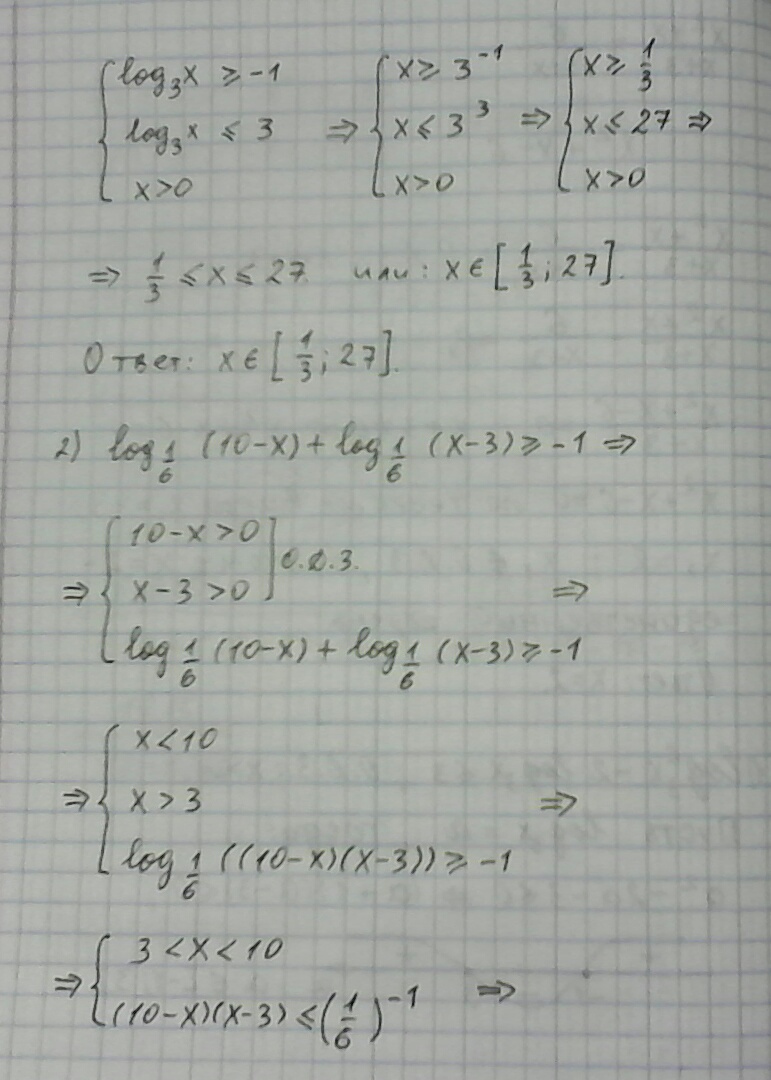 { log₃x ≥ -1 ⇒ { x ≥ 3⁻¹ ⇒ { x ≥ 1/3
log₃x ≤ 3 x ≤ 3³ x ≤ 27 ⇒
x>0 x>0 x>0
⇒ 1/3 ≤ x ≤ 27. или: x ∈ [1/3; 27].
Ответ: x ∈ [1/3; 27].
2) log_{1/6} (10-x) + log_{1/6} (x-3) ≥ -1 ⇒
⇒ { 10-x>0 ] О.Д.З.
x-3>0 ⇒
log_{1/6} (10-x) + log_{1/6} (x-3) ≥ -1
{ x<10
⇒ x>3 ⇒
log_{1/6} ((10-x)(x-3)) ≥ -1
⇒ { 3<x<10 ⇒
(10-x)(x-3) ≤ (1/6)⁻¹